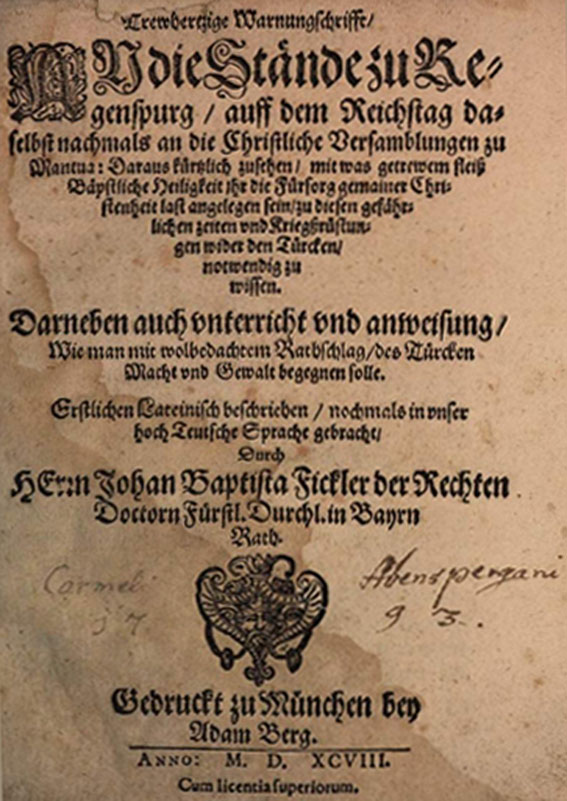 Trewhertzige Warnungschrifft/
AN die Stände zu Re-
genspurg / auff dem Reichstag da-
selbst nachmals an die Christliche Versamblungen zu
Mantua: Daraus kürtzlich zusehen / mit was getrewem fleiß
Bäpstliche Heiligkeit ihr die Fürsorg gemainer Chri-
stenheit last angelegen sein / zu diesen gefähr-
lichen zeiten vnd Kriegßrüstun-
gen wider den Türcken /
notwendig zu
wissen.
Darneben auch vnterricht vnd anweisung /
Wie man mit wolbedachtem Rathschlag / des Türcken
Macht vnd Gewalt begegnen solle.
Erstlichen Lateinisch beschrieben / nochmals in vnser
hoch Teutsche Sprache gebracht /
Durch
HErrn Johan Baptista Fickler der Rechten
Doctorn Fürstl. Durchl. in Bayrn
Rath.
Carmeli Abenspergani
17 93.
Gedruckt zu München bey
Adam Berg.
ANNO: M. D. XCVIII.
Cum licentia superiorum.